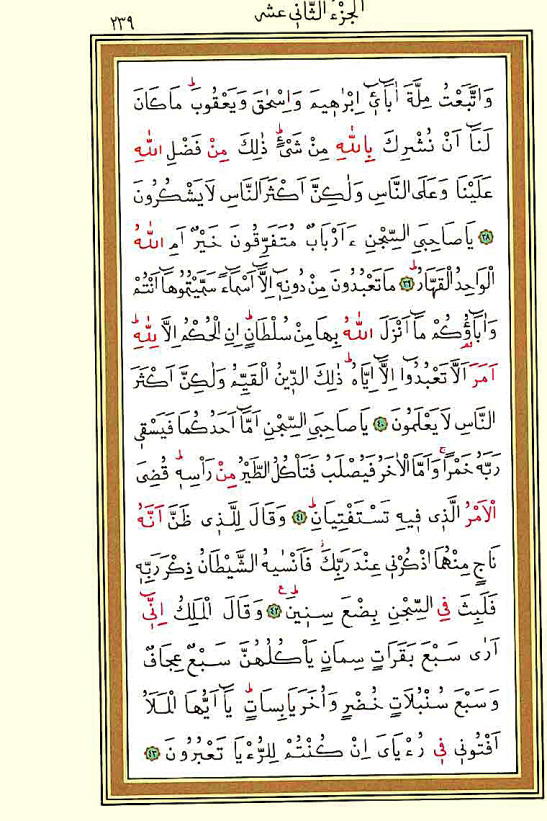 الجزء الثّانى عشر
٢٣٩
وَاتَّبَعْتُ مِلَّةَ اٰبَٓاء۪ٓى اِبْرٰه۪يمَ وَاِسْحٰقَ وَيَعْقُوبَۜ مَا كَانَ
لَنَٓا اَنْ نُشْرِكَ بِاللّٰهِ مِنْ شَىْءٍۜ ذٰلِكَ مِنْ فَضْلِ اللّٰهِ
عَلَيْنَا وَعَلَى النَّاسِ وَلٰكِنَّ اَكْثَرَ النَّاسِ لَا يَشْكُرُونَ
﴿٣٨﴾ يَا صَاحِبَىِ السِّجْنِ ءَاَرْبَابٌ مُتَفَرِّقُونَ خَيْرٌ اَمِ اللّٰهُ
الْوَاحِدُ الْقَهَّارُۜ ﴿٣٩﴾ مَا تَعْبُدُونَ مِنْ دُونِه۪ٓ اِلَّٓا اَسْمَٓاءً سَمَّيْتُمُوهَٓا اَنْتُمْ
وَاٰبَٓاؤُ۬كُمْ مَٓا اَنْزَلَ اللّٰهُ بِهَا مِنْ سُلْطَانٍۜ اِنِ الْحُكْمُ اِلَّا لِلّٰهِۜ
اَمَرَ اَلَّا تَعْبُدُٓوا اِلَّٓا اِيَّاهُۜ ذٰلِكَ الدّ۪ينُ الْقَيِّمُ وَلٰكِنَّ اَكْثَرَ
النَّاسِ لَا يَعْلَمُونَ ﴿٤٠﴾ يَا صَاحِبَىِ السِّجْنِ اَمَّٓا اَحَدُكُمَا فَيَسْق۪ى
رَبَّهُ خَمْرًاۚ وَاَمَّا الْاٰخَرُ فَيُصْلَبُ فَتَأْكُلُ الطَّيْرُ مِنْ رَأْسِه۪ۜ قُضِىَ
الْاَمْرُ الَّذ۪ى ف۪يهِ تَسْتَفْتِيَانِۜ ﴿٤١﴾ وَقَالَ لِلَّذ۪ى ظَنَّ اَنَّهُ
نَاجٍ مِنْهُمَا اذْكُرْن۪ى عِنْدَ رَبِّكَۘ فَاَنْسٰيهُ الشَّيْطَانُ ذِكْرَ رَبِّه۪
فَلَبِثَ فِى السِّجْنِ بِضْعَ سِن۪ينَۜ ﴿٤٢﴾ وَقَالَ الْمَلِكُ اِنّ۪ٓى
اَرٰى سَبْعَ بَقَرَاتٍ سِمَانٍ يَأْكُلُهُنَّ سَبْعٌ عِجَافٌ
وَسَبْعَ سُنْبُلَاتٍ خُضْرٍ وَاُخَرَ يَابِسَاتٍۜ يَٓا اَيُّهَا الْمَلَاُ
اَفْتُون۪ى ف۪ى رُءْيَاىَ اِنْ كُنْتُمْ لِلرُّءْيَا تَعْبُرُونَ ﴿٤٣﴾